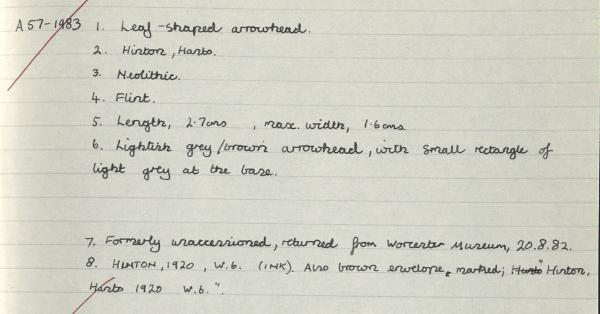 A57-1983 1. Leaf-shaped arrowhead.
2. Hinton, Hants.
3. Neolithic.
4. Flint.
5. Length, 2.7cms , max. width, 1.6cms.
6. Lightish grey/brown arrowhead, with small rectangle of
light grey at the base.
7. Formerly unaccessioned, returned from Worcester Museum, 20.8.82.
8. HINTON, 1920, W.6. (INK). Also brown envelope, marked; Hants "Hinton,
Hants 1920 W.6.".